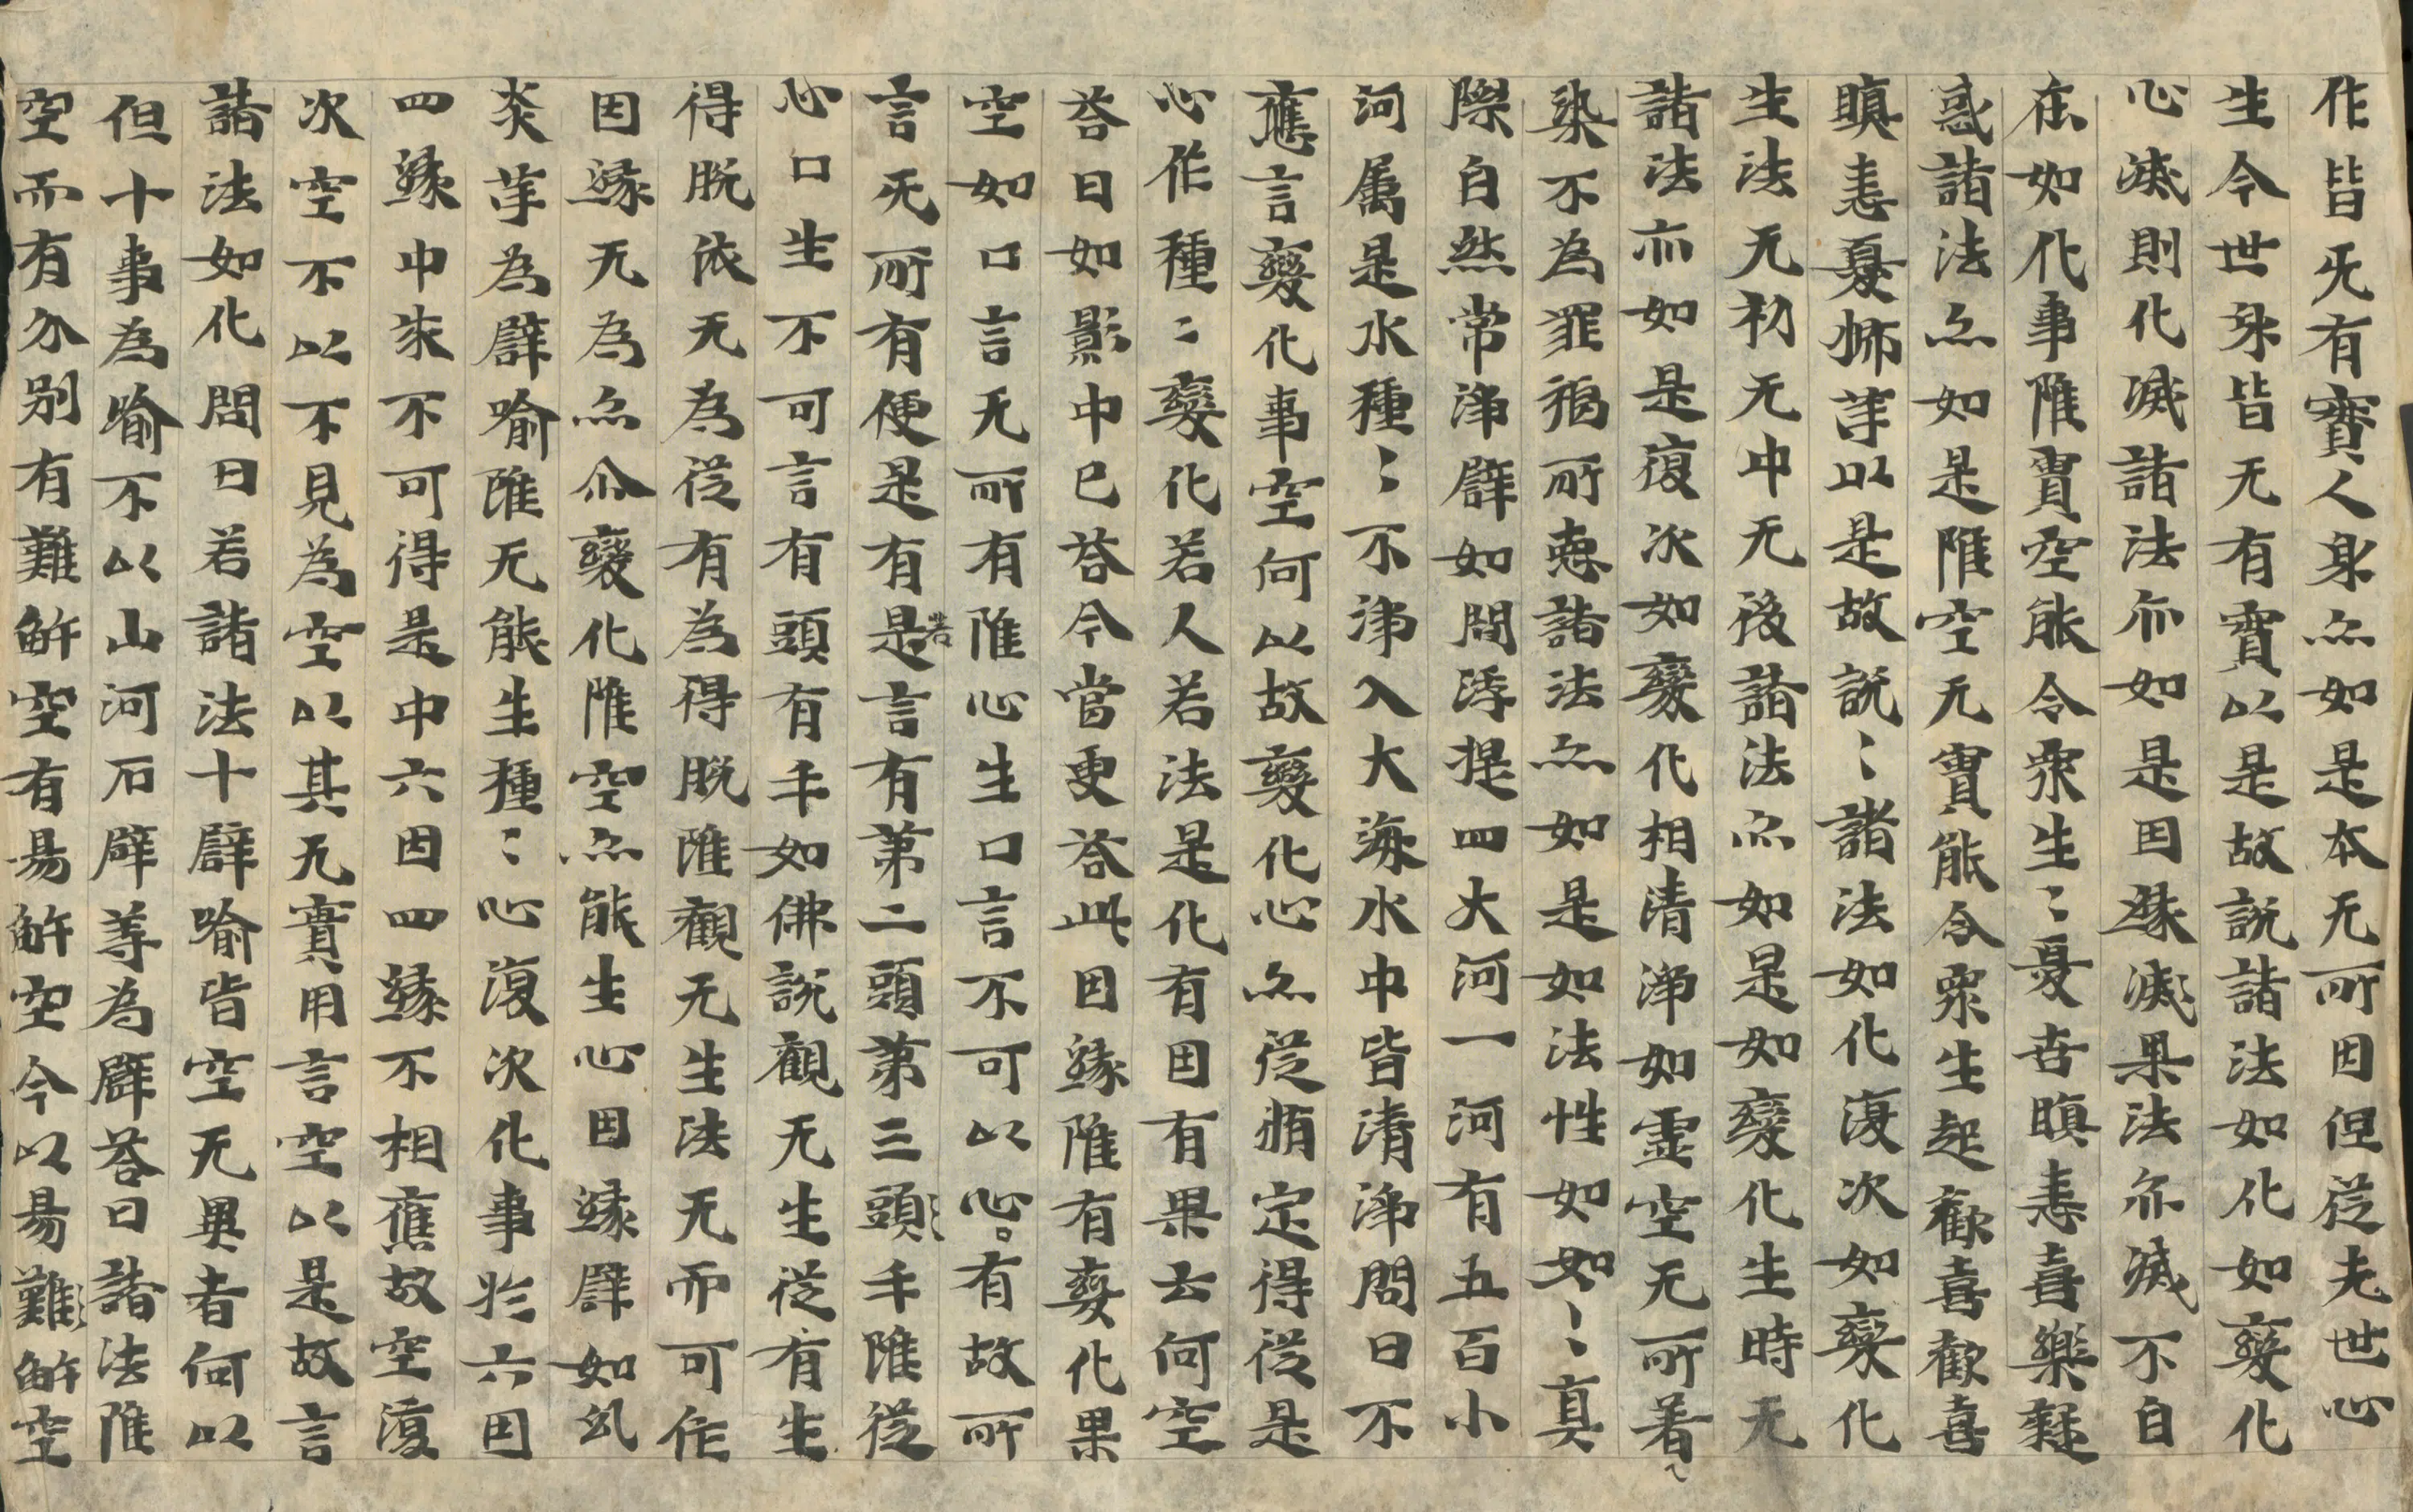 作皆无有實人身亦如是本无所因但從先世心
生今世身皆无有實以是故說諸法如化如變化
心滅則化滅諸法亦如是因緣滅果法亦滅不自
在如化事雖實空能令眾生〻憂苦瞋恚喜樂疑
惑諸法亦如是雖空无實能令眾生起歡喜歡喜
瞋恚憂怖等以是故說〻諸法如化復次如變化
生法无初无中无後諸法亦如是如變化生時无
諸法亦如是復次如變化相清淨如虛空无所著
染不為罪福所恵諸法亦如是如法性如如〻真
際自然常淨譬如閻浮提四大河一河有五百小
河属是水種〻不淨入大海水中皆清淨問曰不
應言變化事空何以故變化心亦從脩定得從是
心作種〻變化若人若法是化有因有果云何空
荅曰如影中已荅今當更荅此因緣雖有變化果
空如口言无所有雖心生口言不可以心口有故所
言无所有便是有是若言有第二頭第三頭〻手雖從
心口生不可言有頭有手如佛說觀无生從有生
得脫依无為從有為得脫雖觀无生法无而可作
因緣无為亦尒變化雖空亦能生心因緣譬如幻
炎等為譬喻雖无能生種〻心復次化事於六因
四緣中求不可得是中六因四緣不相應故空復
次空不以不見為空以其无實用言空以是故言
諸法如化問曰若諸法十譬喻皆空无異者何以
但十事為喻不以山河石辟等為譬荅曰諸法雖
空而有分別有難解空有易解空今以易難〻解空